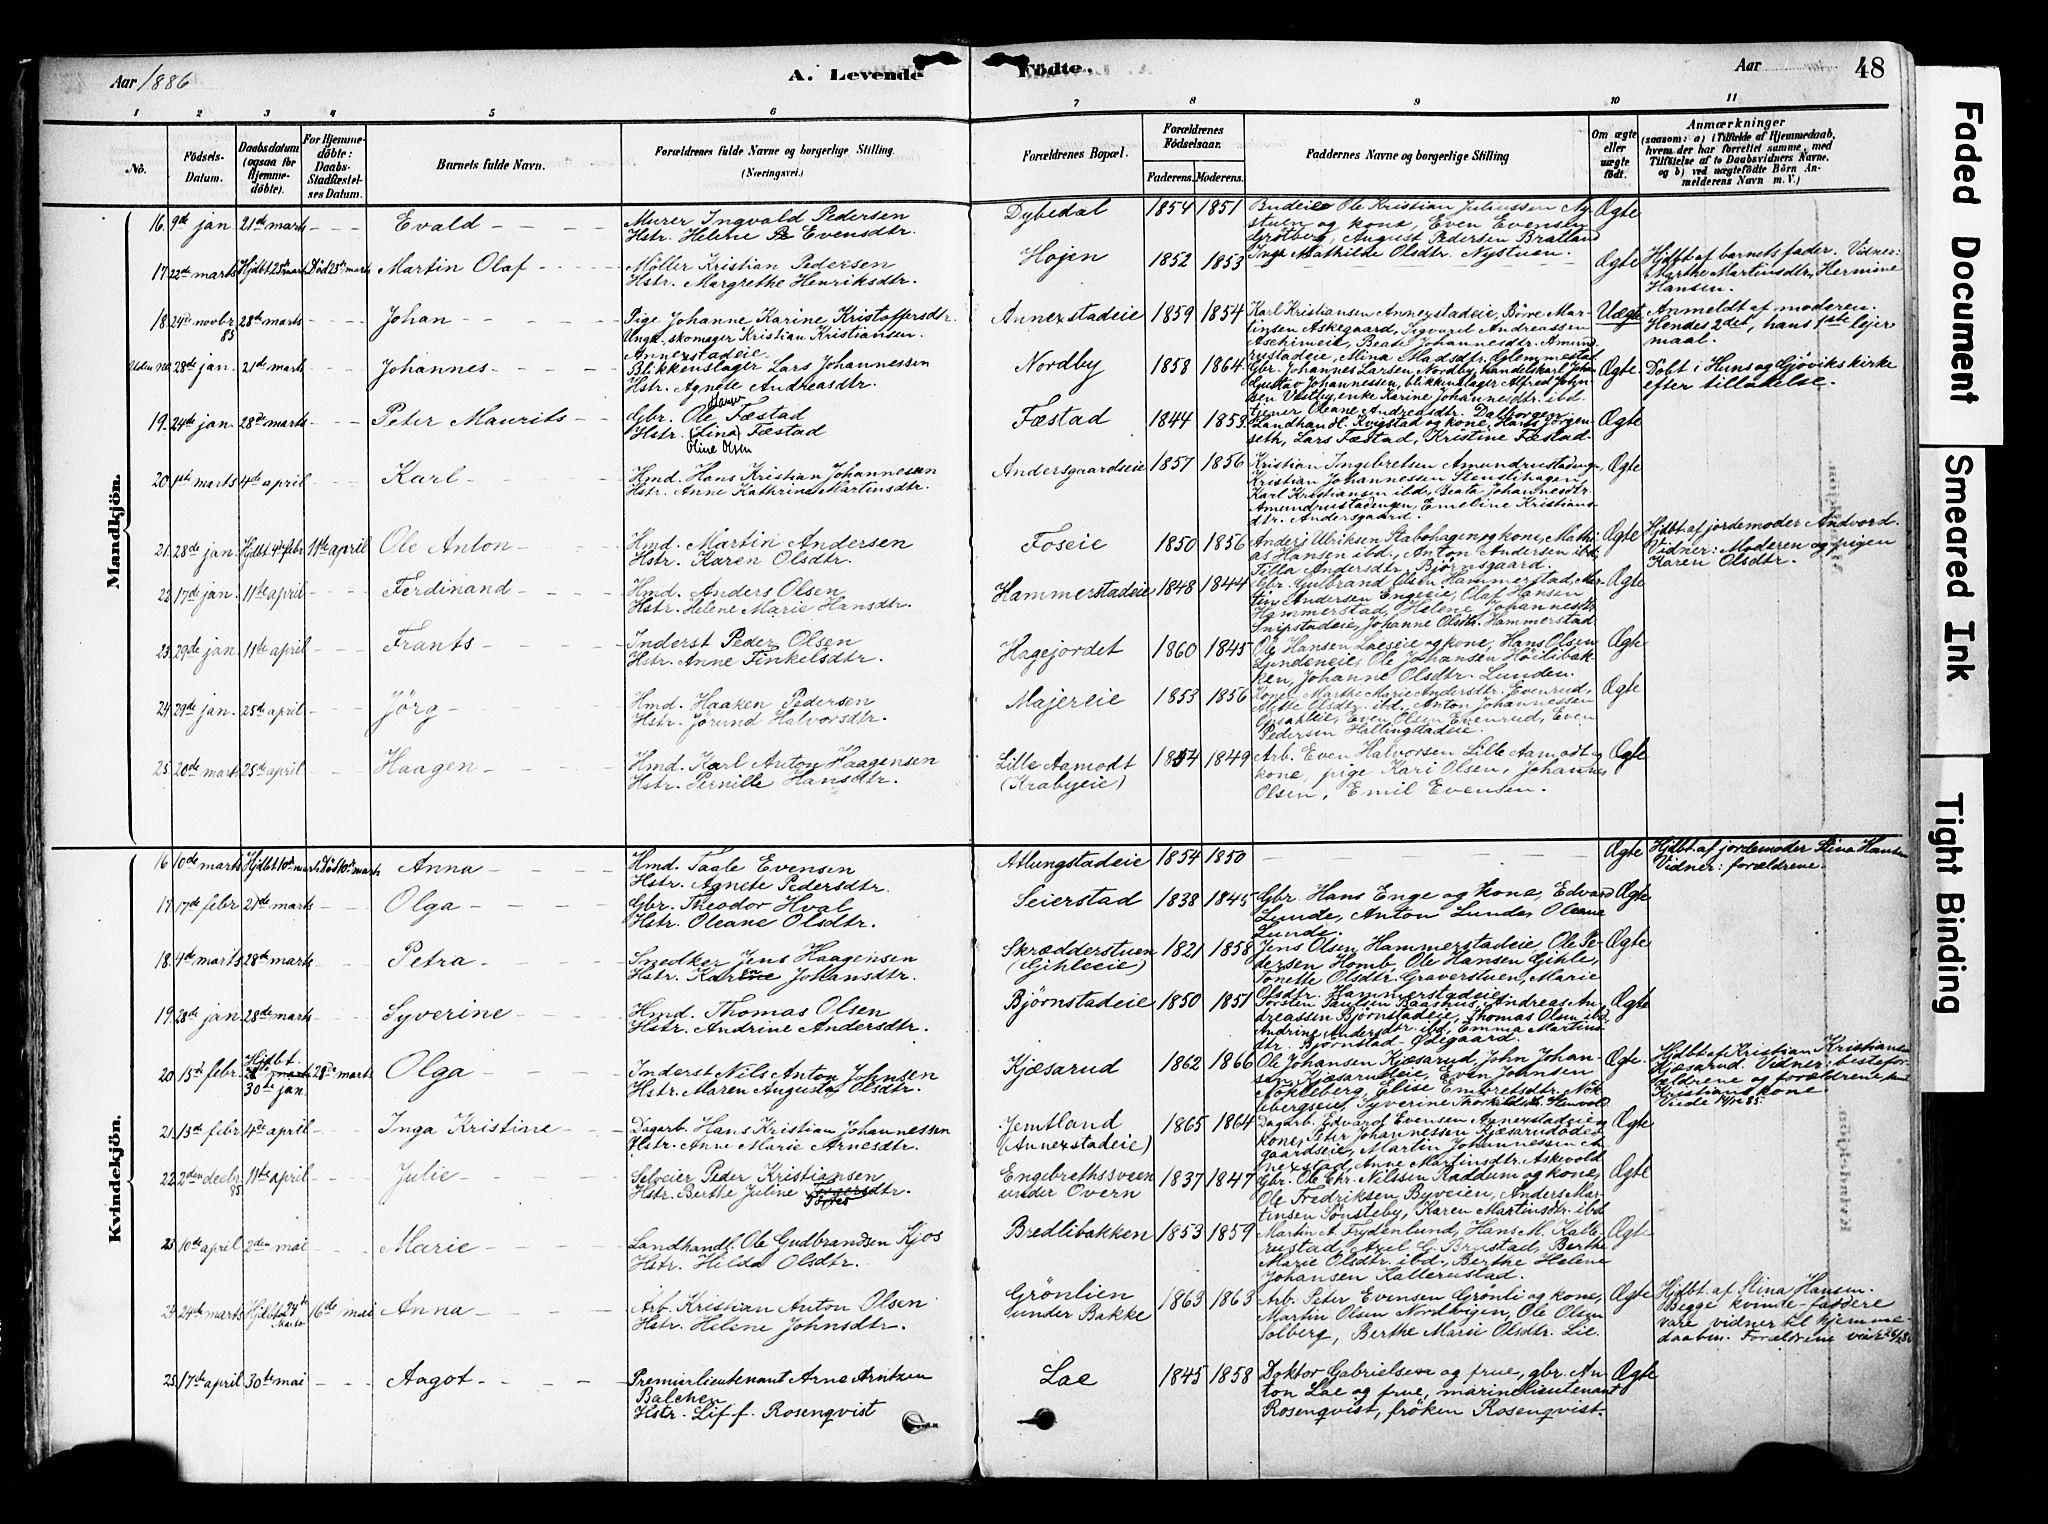 Aar 1886
A. Levende Födte.
Aar
48
1 2 3 4 5 6 7 8 9 10 11
No.
Födsels-Datum.
Daabsdatum (ogsaa for Hjemmedöbte).
For Hjemmedöbte: Daabs-Stadfæstelses Datum.
Barnets fulde Navn.
Forældrenes fulde Navne og borgerlige Stilling
(Næringsvei.)
Forældrenes Bopæl.
Forældrenes Födselsaar.
Faderens. Moderens.
Faddernes Navne og borgerlige Stilling
Om ægte eller uægte födt.
Anmærkninger
(saasom: a) i Tilfælde af Hjemmedaab,
hvem der har forrettet samme, med
Tilföielse af to Daabsvidners Navne,
og b) ved uægtefödte Börn Anmelderens Navn m. V.)
Mandkjön.
16. 9de jan 21de marts - - - Evald - - - - Murer Ingvald Pedersen
Hstr. Helene Evensdtr.
Dybedal 1854 1851 Budeie Ole Kristian Juliussen Nystuen og kone, Even Evensen
Grötberg, August Pedersen Bratland
Inga Mathilde Olsdtr. Nystuen. Ægte
17. 22de marts Hjdbt 25de marts Död 25de marts Martin Olaf - - - Möller Kristian Pedersen
Hstr. Margrethe Henriksdtr.
Höjen 1852 1853 Ægte Hjdbt af barnets fader. Vidner:
Marthe Martinsdtr, Hermine
Hansen.
18. 24de novbr 85 28de marts - - - Johan - - - - Pige Johanne Karine Kristoffersdtr.
Ungk. skomager Kristian Kristiansen.
Annexstadeie
Annexstadeie 1859 1854 Karl Kristiansen Annexstadeie, Börre Martinsen Askegaard, Sigvurd Andreassen
Aschimeie, Beate Johannesdtr. Amundrustadeie, Mina Madsdtr. Glemmestad
Uægte Anmeldt af moderen.
Hendes 2det, hans 1ste lejermaal.
Uden No 28de jan. 21de marts - - - Johannes - - - - Blikkenslager Lars Johannessen
Hstr. Agnete Andreasdtr.
Nordby 1858 1864 Gbr. Johannes Larsen, Nordby, handelskarl Johan
Gustav Johannessen, blikkenslager Alfred Johnsen Vestby, enke Karine Johannesdtr. ibd.
tjener Oleane Andreasdtr. Dalborgen
Ægte Döbt i Hunn og Gjöviks kirke
efter tilladelse.
19. 24de jan 28de marts - - - Peter Maurits - - - Gbr. Ole Hansen Fæstad
Hstr. (Lina) Fæstad
Oline Olsen
Fæstad 1844 1859 Landhandl. Kvigstad og kone, Hans Jörgenseth, Lars Fæstad, Kristine Fæstad. Ægte
20. 1ste marts 4de april - - - Karl - - - - Hmd. Hans Kristian Johannesen
Hstr. Anne Kathrine Martinsdtr.
Andersgaardseie 1857 1856 Kristian Ingebretsen Amundrustadengen,
Kristian Johannessen Stenslihagen,
Karl Kristiansen ibd., Beata Johannesdtr.
Amundrustadengen, Emeline Kristiansdtr. Andersgaard. Ægte
21. 28de jan. Hjdbt 4de febr 11te april Ole Anton - - - Hmd. Martin Andersen
Hstr. Karen Olsdtr.
Foseie 1850 1856 Anders Ulriksen Stabohagen og kone, Mathias Hansen ibd., Anton Andersen ibd.
Tilla Andersdtr. Björnsgaard. Ægte Hjdbt. af jordemoder Andvord.
Vidner: Moderen og pigen
Karen Olsdtr.
22. 17de jan. 11te april - - - Ferdinand - - - Hmd. Anders Olsen
Hstr. Helene Marie Hansdtr.
Hammerstadeie 1848 1844 Gbr. Gulbrand Olsen Hammerstad, Martin Andersen Engeeie, Olaf Hansen
Hammerstad, Helene Johannesdtr
Snipstadeie, Johanne Olsdtr. Hammerstad Ægte
23. 29de jan. 11te april - - - Frants - - - - Inderst Peder Olsen
Hstr. Anne Finkelsdtr.
Hagejordet 1860 1845 Ole Hansen Laeseie og kone, Hans Olsen
Lundeneie, Ole Johansen Höilibakken, Johanne Olsdtr. Lunden. Ægte
24. 29de jan. 25de april - - - Jörg - - - - Hmd. Haaken Pedersen
Hstr. Jörund Halvorsdtr.
Majereie 1853 1856 Kone Marthe Marie Andersdtr. Evenrud,
Mette Olsdtr. ibd., Anton Johannessen
Opsahleie, Even Olsen Evenrud, Even
Pedersen Hallingstadeie. Ægte
25. 20de marts 25de april - - - Haagen - - - - Hmd. Karl Anton Haagensen
Hstr. Pernille Hansdtr.
Lille Aamodt
(Krabyeie) 1854 1849 Arb. Even Halvorsen Lille Aamodt og
kone, pige Kari Olsen, Johannes
Olsen, Emil Evensen. Ægte
Kvindekjön.
16 10de marts Hjdbt 10de marts Död 10de marts Anna - - - - Hmd. Taale Evensen
Hstr. Agnete Pedersdtr.
Atlungstadeie 1854 1850 - - - Ægte Hjdbt. af jordemoder Stina Hansen
Vidner: forældrene.
17. 17de febr. 21de marts - - - Olga - - - - Gbr. Theodor Hval
Hstr. Oleane Olsdtr.
Seierstad 1838 1845 Gbr. Hans Enge og kone, Edvard
Lunde, Anton Lunde, Oleane
Lunde. Ægte
18. 4de marts 28de marts - - - Petra - - - - Snedker Jens Haagensen
Hstr. Karen Johansdtr.
Skrædderstuen
(Gihleeie) 1821 1858 Jens Olsen Hammerstadeie, Ole Pedersen Homb, Ole Hansen Gihle,
Tonette Olsdtr. Graverstuen, Marie
Olsdtr. Hammerstadeie Ægte
19. 28de jan 28de marts - - - Syverine - - - Hmd. Thomas Olsen
Hstr. Andrine Andersdtr.
Björnstadeie 1850 1851 Torsten Paulsen Baashus, Andreas Andreassen Björnstadeie, Thomas Olsen ibd.
Andrine Andersdtr. ibd., Emma Martinsdtr. Björnstad-Ödegaard. Ægte
20. 15de febr. Hjdbt. 30te jan. 28de marts Olga - - - - Inderst Nils Anton Johnsen
Hstr. Maren Augusta Olsdtr.
Kjæsarud 1862 1866 Ole Johansen Kjæsarud, John Johansen, Kjæsarudeie, Even Johnsen
Nökleberg, Elise Embretsdtr. Nöklebergseie, Syverine Thorkildsdtr. Stenvold Ægte Hjdbt. af Kristian Kristiansen
Kjæsarud. Vidner: bestefor-
ældrene og forældrene samt
Kristians kone
Viede 14/12 85.
21. 13de febr. 4de april - - - Inga Kristine - - - Dagarb. Hans Kristian Johannessen
Hstr. Anne Marie Arnesdtr.
Jemtland
(Annexstadeie) 1865 1864 Dagarb. Edvard Evensen Annexstadeie og
kone, Peter Johannessen Kjæsarudödegaardseie, Martin Johannessen Annexstad, Anne Martinsdtr. Askevold Ægte
22. 2den decbr. 85 11te april - - - Julie - - - - Selveier Peder Kristiansen
Hstr. Berthe Juline Töfres dtr.
Engebrethssveen
under Overn 1837 1847 Gbr. Ole Chr. Nilssen Raddum og kone,
Ole Fredriksen Byveien, Anders Martinsen Sönsteby, Karen Martinsdtr. ibd Ægte
23. 10de april 2den mai - - - Marie - - - - Landhandl. Ole Gudbrandsen Kjos
Hstr. Hilda Olsdtr.
Bredlibakken 1853 1859 Martin A. Frydenlund, Hans M. Kallerustad, Axel G. Brustad, Berthe
Marie Olsdtr. ibd., Berthe Helene
Johansen Kallerustad. Ægte
24. 24de marts Hjdbt 24de Marts 16de mai Anna - - - - Arb. Kristian Anton Olsen
Hstr. Helene Johnsdtr.
Grönlien
under Bakke 1863 1863 Arb. Peter Evensen Grönli og kone,
Martin Olsen Nordvigen, Ole Olsen
Solberg, Berthe Marie Olsdtr. Lie. Ægte Hjdbt. af Stina Hansen.
Begge kvinde-faddere
vare vidner til hjemme-
daaben. Forældrene viet
25. 17de april 30te mai - - - Aagot - - - - Premierlieutenant Arne Arntzen
Balchen
Hstr. Lif f. Rosenqvist
Lae 1845 1858 Doktor Gabrielsen og frue, gbr. Anton Lae og frue, marinelieutenant
Rosenqvist, fröken Rosenqvist. Ægte
Faded Document
Smeared Ink
Tight Binding